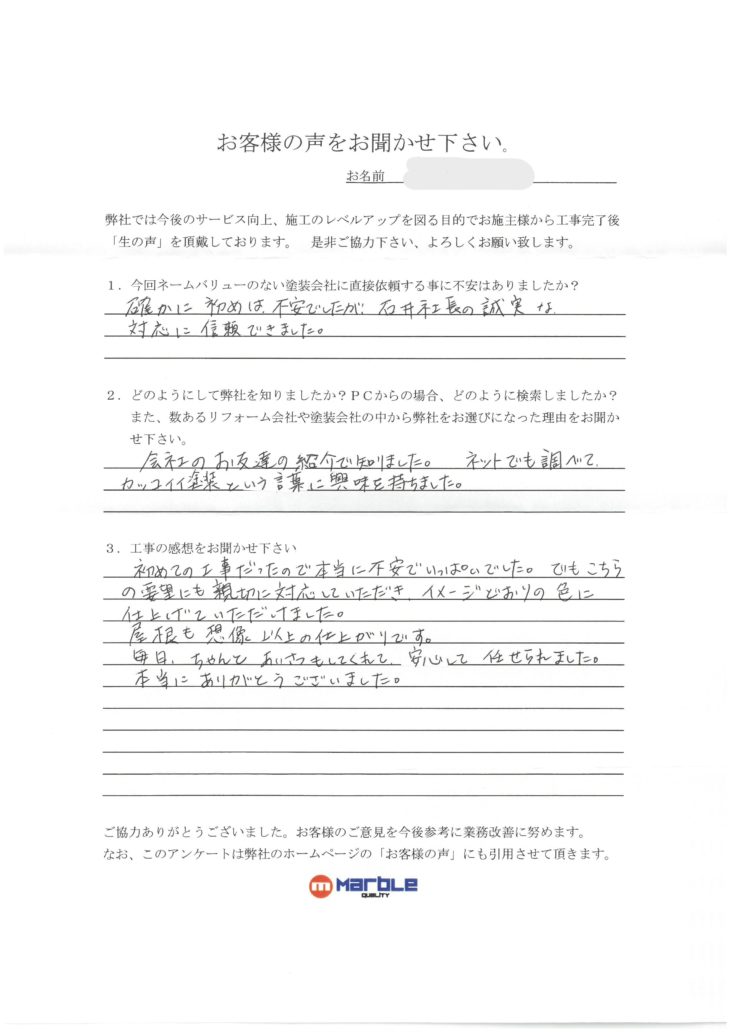 お客様の声をお聞かせ下さい。
お名前
弊社では今後のサービス向上、施工のレベルアップを図る目的でお施主様から工事完了後
「生の声」を頂戴しております。　是非ご協力下さい、よろしくお願い致します。
１．今回ネームバリューのない塗装会社に直接依頼する事に不安はありましたか？
確かに 初めは 不安でしたが、石井社長の誠実な
対応に信頼できました。
２．どのようにして弊社を知りましたか？ＰＣからの場合、どのように検索しましたか？
また、数あるリフォーム会社や塗装会社の中から弊社をお選びになった理由をお聞か
せ下さい。
会社のお友達の紹介で知りました。　ネットでも調べて、
カッコイイ塗装という言葉に興味を持ちました。
３．工事の感想をお聞かせ下さい
初めての工事だったので本当に不安でいっぱいでした。でもこちら
の要望にも親切に対応していただき、イメージどおりの色に
仕上げていただけました。
屋根も想像以上の仕上がりです。
毎日、ちゃんとあいさつもしてくれて、安心して任せられました。
本当にありがとうございました。
ご協力ありがとうございました。お客様のご意見を今後参考に業務改善に努めます。
なお、このアンケートは弊社のホームページの「お客様の声」にも引用させて頂きます。
m marble
QUALITY